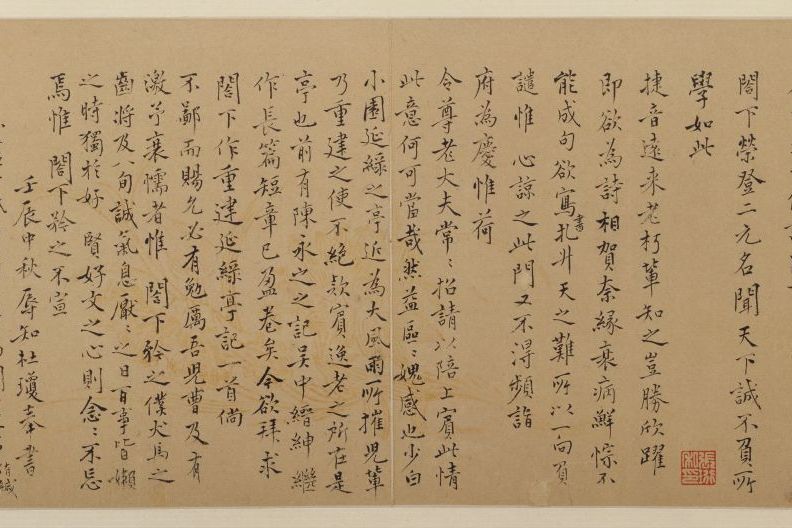 閤下榮登二元名聞天下誠不負所
學如此
捷音遠來老朽輩知之豈勝欣躍
即欲為詩相賀奈緣衰病鮮悰不
能成句欲寫書扎升天之難所以一向負
譴惟 心諒之此門又不得頻詣
府為慶惟荷
令尊老大夫常〻招請以陪上賓此情
此意何可當哉然益區〻媿感也少白
小園延綠之亭近為大風雨所摧兒輩
乃重建之使不絕欵賓逸老之所在是
亭也前有陳永之之記吴中縉紳繼
作長篇短章已盈卷矣今欲拜求
閤下作重建延綠亭記一首倘
不鄙而賜允必有勉厲吾兒曹及有
激于衰懦者惟 閤下矜之僕犬馬之
齒將及八旬誠氣息厭〻之日百事皆嬾
之時獨於好 賢好文之心則念〻不忘
焉惟 閤下矜之不宣
壬辰中秋辱知杜瓊奉書